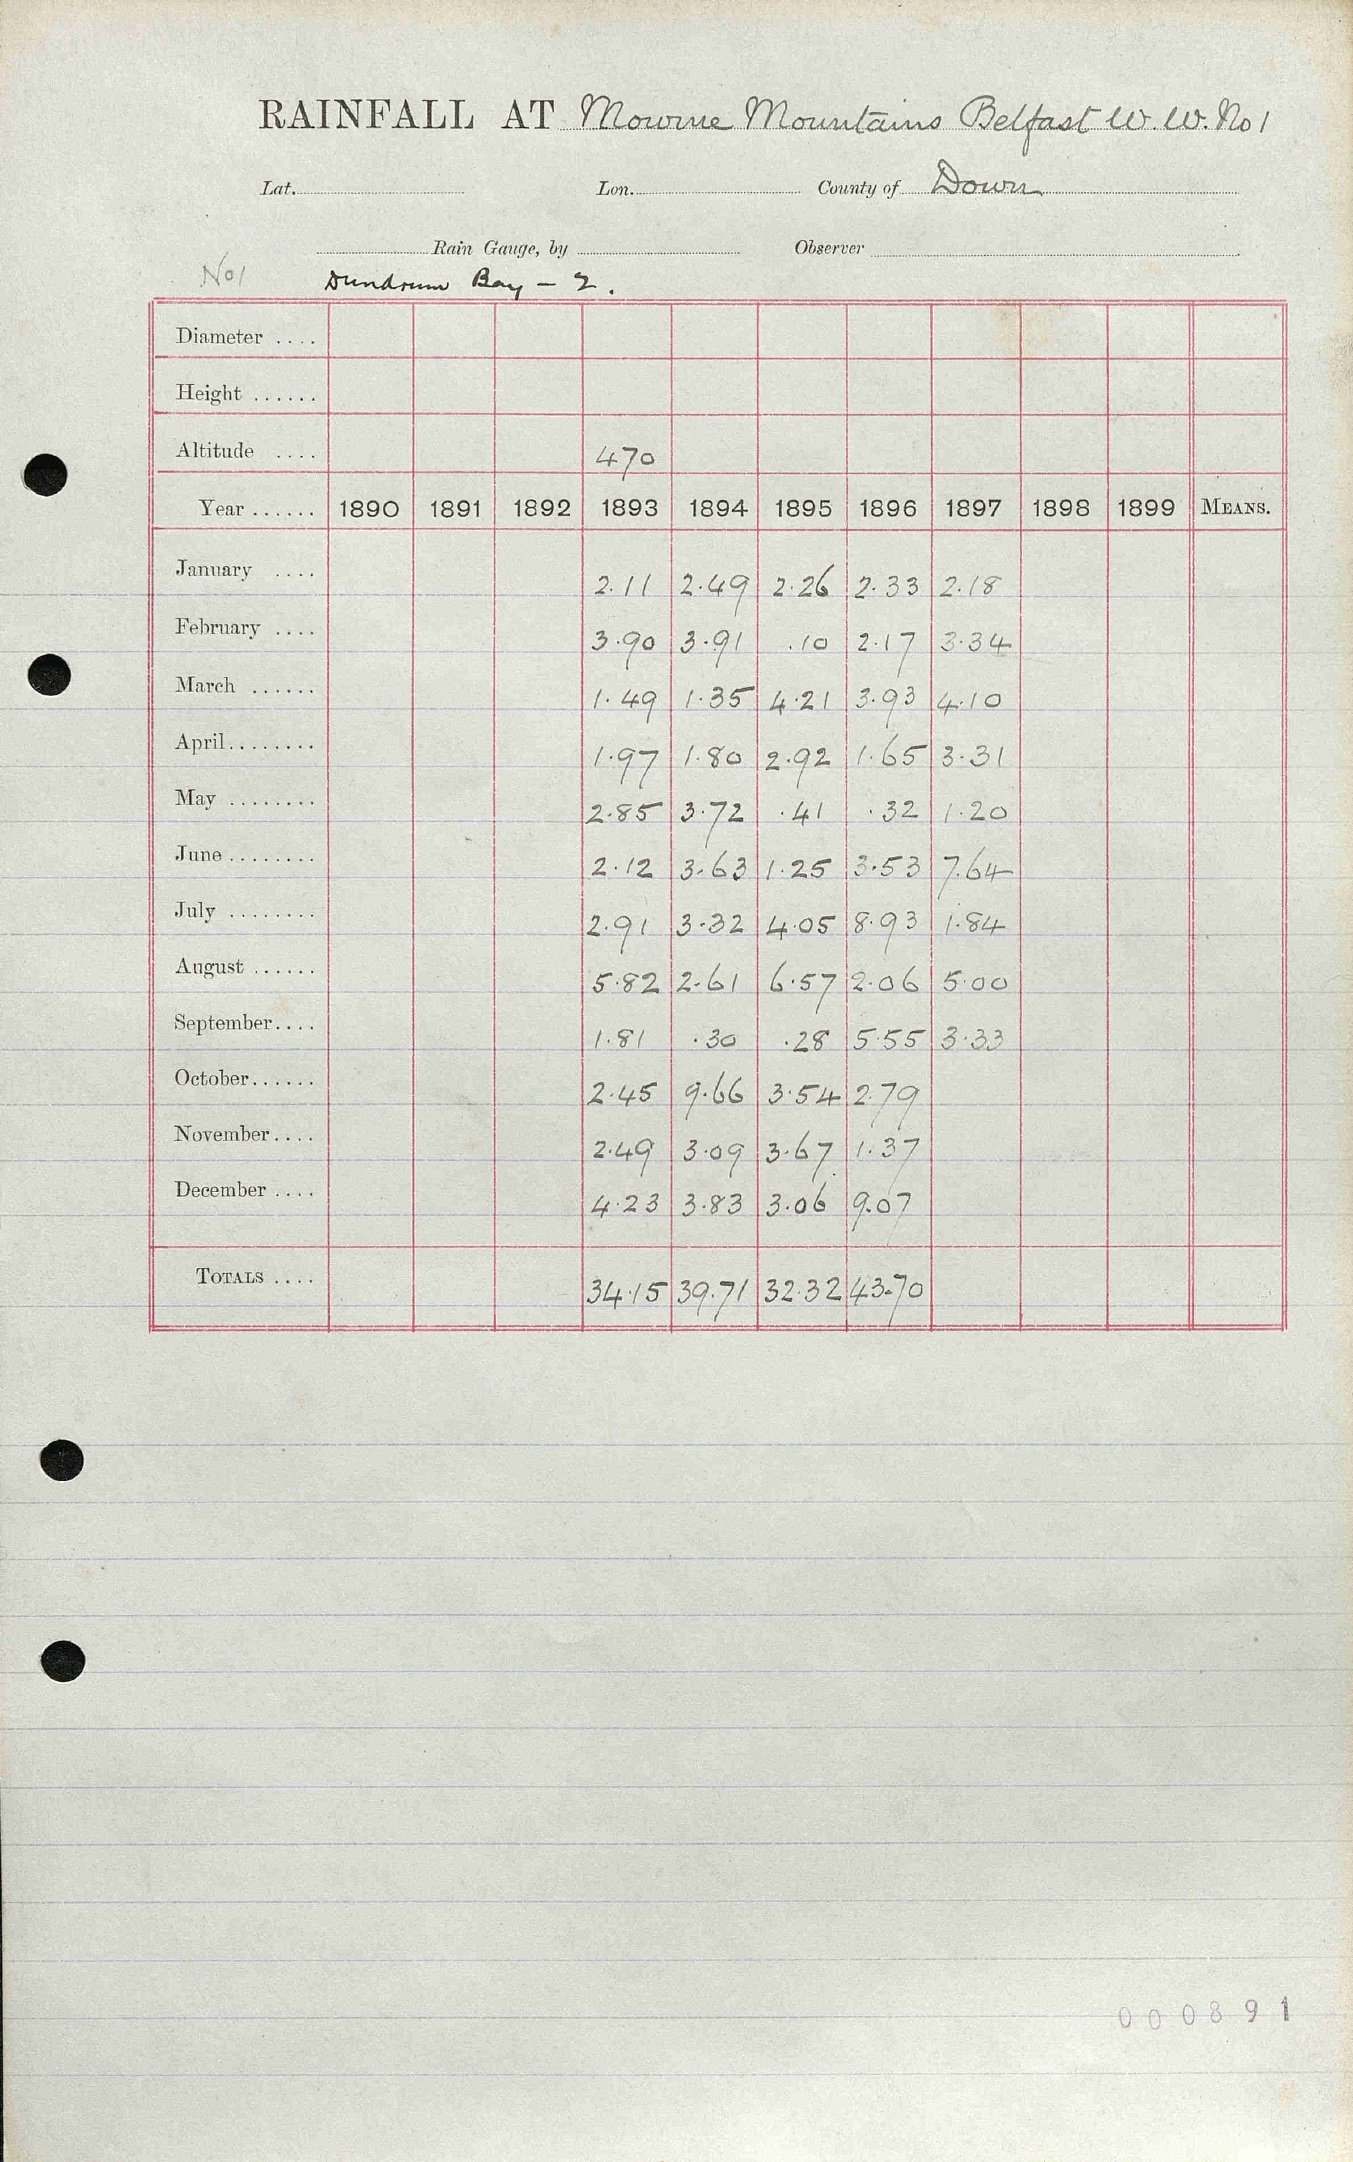 RAINFALL AT Mourne Mountains Belfast W. W. No 1
Lat. Lon. County of Down
Rain Gauge, by Observer
No 1 Dundrum Bay - 2.
Diameter ....
Height ......
Altitude .... 470
Year ...... 1890 1891 1892 1893 1894 1895 1896 1897 1898 1899 MEANS.
January .... 2.11 2.49 2.26 2.33 2.18
February .... 3.90 3.91 .10 2.17 3.34
March ...... 1.49 1.35 4.21 3.93 4.10
April........ 1.97 1.80 2.92 1.65 3.31
May ........ 2.85 3.72 .41 .32 1.20
June........ 2.12 3.63 1.25 3.53 7.64
July ........ 2.91 3.32 4.05 8.93 1.84
August ...... 5.82 2.61 6.57 2.06 5.00
September.... 1.81 .30 .28 5.55 3.33
October...... 2.45 9.66 3.54 2.79
November.... 2.49 3.09 3.67 1.37
December .... 4.23 3.83 3.06 9.07
TOTALS .... 34.15 39.71 32.32 43.70
000891